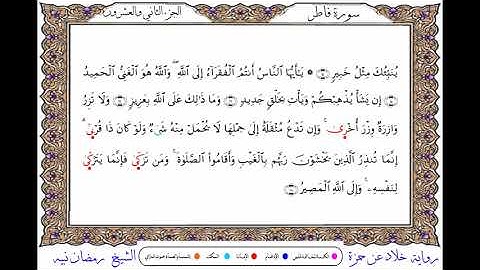 سورة فاطر
الجزء الثاني والعشرون
يُنَبِّئُكَ مِثْلُ خَبِيرٍ ۞ يَٰٓأَيُّهَا ٱلنَّاسُ أَنتُمُ ٱلْفُقَرَآءُ إِلَى ٱللَّهِ ۖ وَٱللَّهُ هُوَ ٱلْغَنِىُّ ٱلْحَمِيدُ
إِن يَشَأْ يُذْهِبْكُمْ وَيَأْتِ بِخَلْقٍ جَدِيدٍ وَمَا ذَٰلِكَ عَلَى ٱللَّهِ بِعَزِيزٍ وَلَا تَزِرُ
وَازِرَةٌ وِزْرَ أُخْرَىٰ ۚ وَإِن تَدْعُ مُثْقَلَةٌ إِلَىٰ حِمْلِهَا لَا يُحْمَلْ مِنْهُ شَىْءٌ وَلَوْ كَانَ ذَا قُرْبَىٰٓ ۗ
إِنَّمَا تُنذِرُ ٱلَّذِينَ يَخْشَوْنَ رَبَّهُم بِٱلْغَيْبِ وَأَقَامُوا۟ ٱلصَّلَوٰةَ ۚ وَمَن تَزَكَّىٰ فَإِنَّمَا يَتَزَكَّىٰ
لِنَفْسِهِۦ ۚ وَإِلَى ٱللَّهِ ٱلْمَصِيرُ
رواية خلاد عن حمزة
الشيخ رمضان نبيه